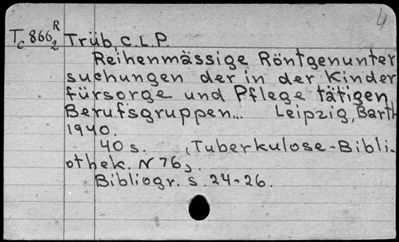 4
Tc 866 R/2 Trüb C.L.P.
Reihenmässige Röntgenunter
suchungen der in der Kinder
fürsorge und Pflege tätigen
Berufsgruppen... Leipzig, Barth
1940.
40 s. (Tuberkulose-Bibli-
othek. N 76).
Bibliogr. s. 24-26.